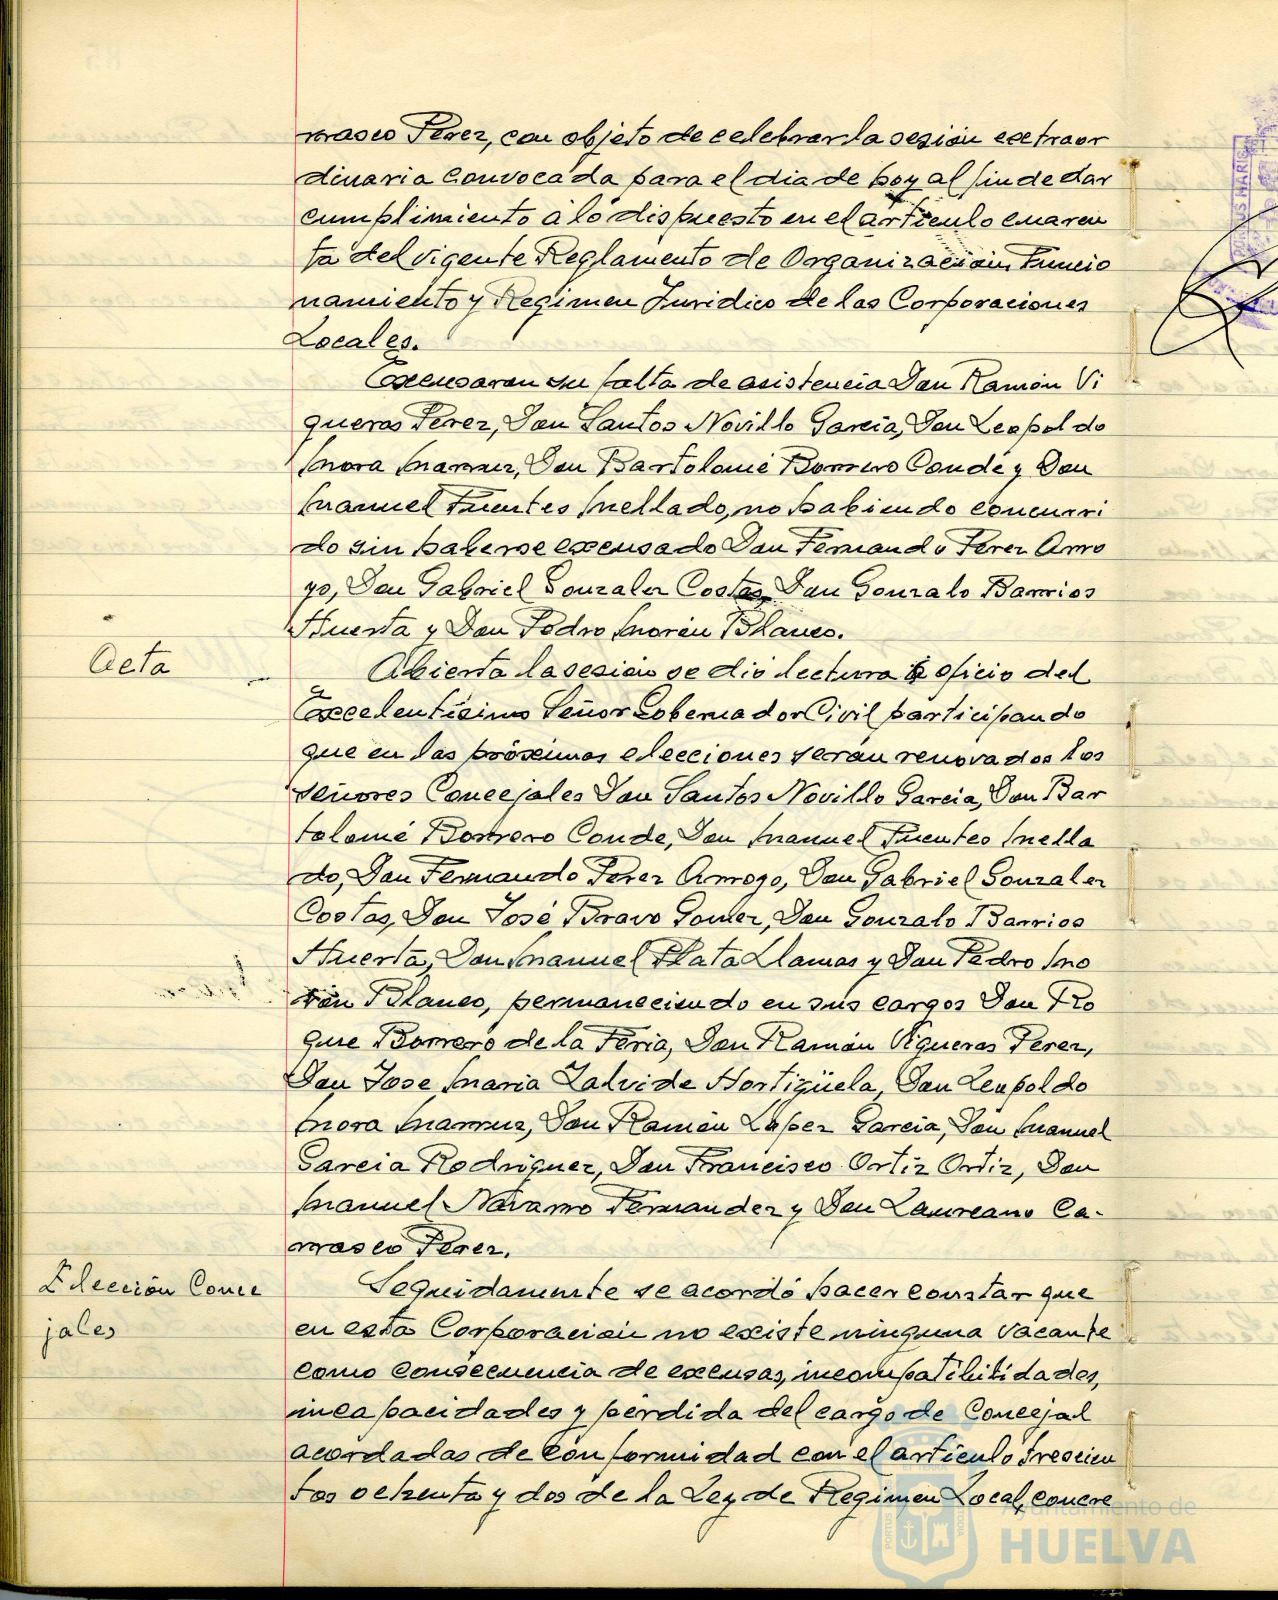 rrasco Perez, con objeto de celebrar la sesión extraor
dinaria convocada para el dia de hoy al fin de dar
cumplimiento á lo dispuesto en el artículo cuaren
ta del vigente Reglamento de Organización, Funcio
namiento y Regimen Juridico de las Corporaciones
Locales.
Excusaron su falta de asistencia Don Ramón Vi
gueras Perez, Don Santos Novillo García, Don Leopoldo
Mora Marruz, Don Bartolomé Borrero Conde y Don
Manuel Fuentes Mellado, no habiendo concurri
do sin haberse excusado Don Fernando Perez Arro
yo, Don Gabriel Gonzalez Costas, Don Gonzalo Barrios
Huerta y Don Pedro Morón Blanco.
Acta
Abierta la sesión se dió lectura á oficio del
Excelentísimo Señor Gobernador Civil participando
que en las próximas elecciones serán renovados los
señores Concejales Don Santos Novillo García, Don Bar
tolomé Borrero Conde, Don Manuel Fuentes Mella
do, Don Fernando Perez Arroyo, Don Gabriel Gonzalez
Costas, Don José Bravo Gomez, Don Gonzalo Barrios
Huerta, Don Manuel Plata Llamas y Don Pedro Mo
rón Blanco, permaneciendo en sus cargos Don Ro
que Borrero de la Feria, Don Ramón Vigueras Perez,
Don Jose Maria Zalvide Hortigüela, Don Leopoldo
Mora Marruz, Don Ramón López Garcia, Don Manuel
Garcia Rodriguez, Don Francisco Ortiz Ortiz, Don
Manuel Navarro Fernandez y Don Laureano Ca-
rrasco Perez.
Elección Conce
jales
Seguidamente se acordó hacer constar que
en esta Corporación no existe ninguna vacante
como consecuencia de excusas, incompatibilidades,
incapacidades y pérdida del cargo de Concejal
acordadas de conformidad con el artículo trescien
tos ochenta y dos de la Ley de Regimen Local, concre
Ayuntamiento de
HUELVA